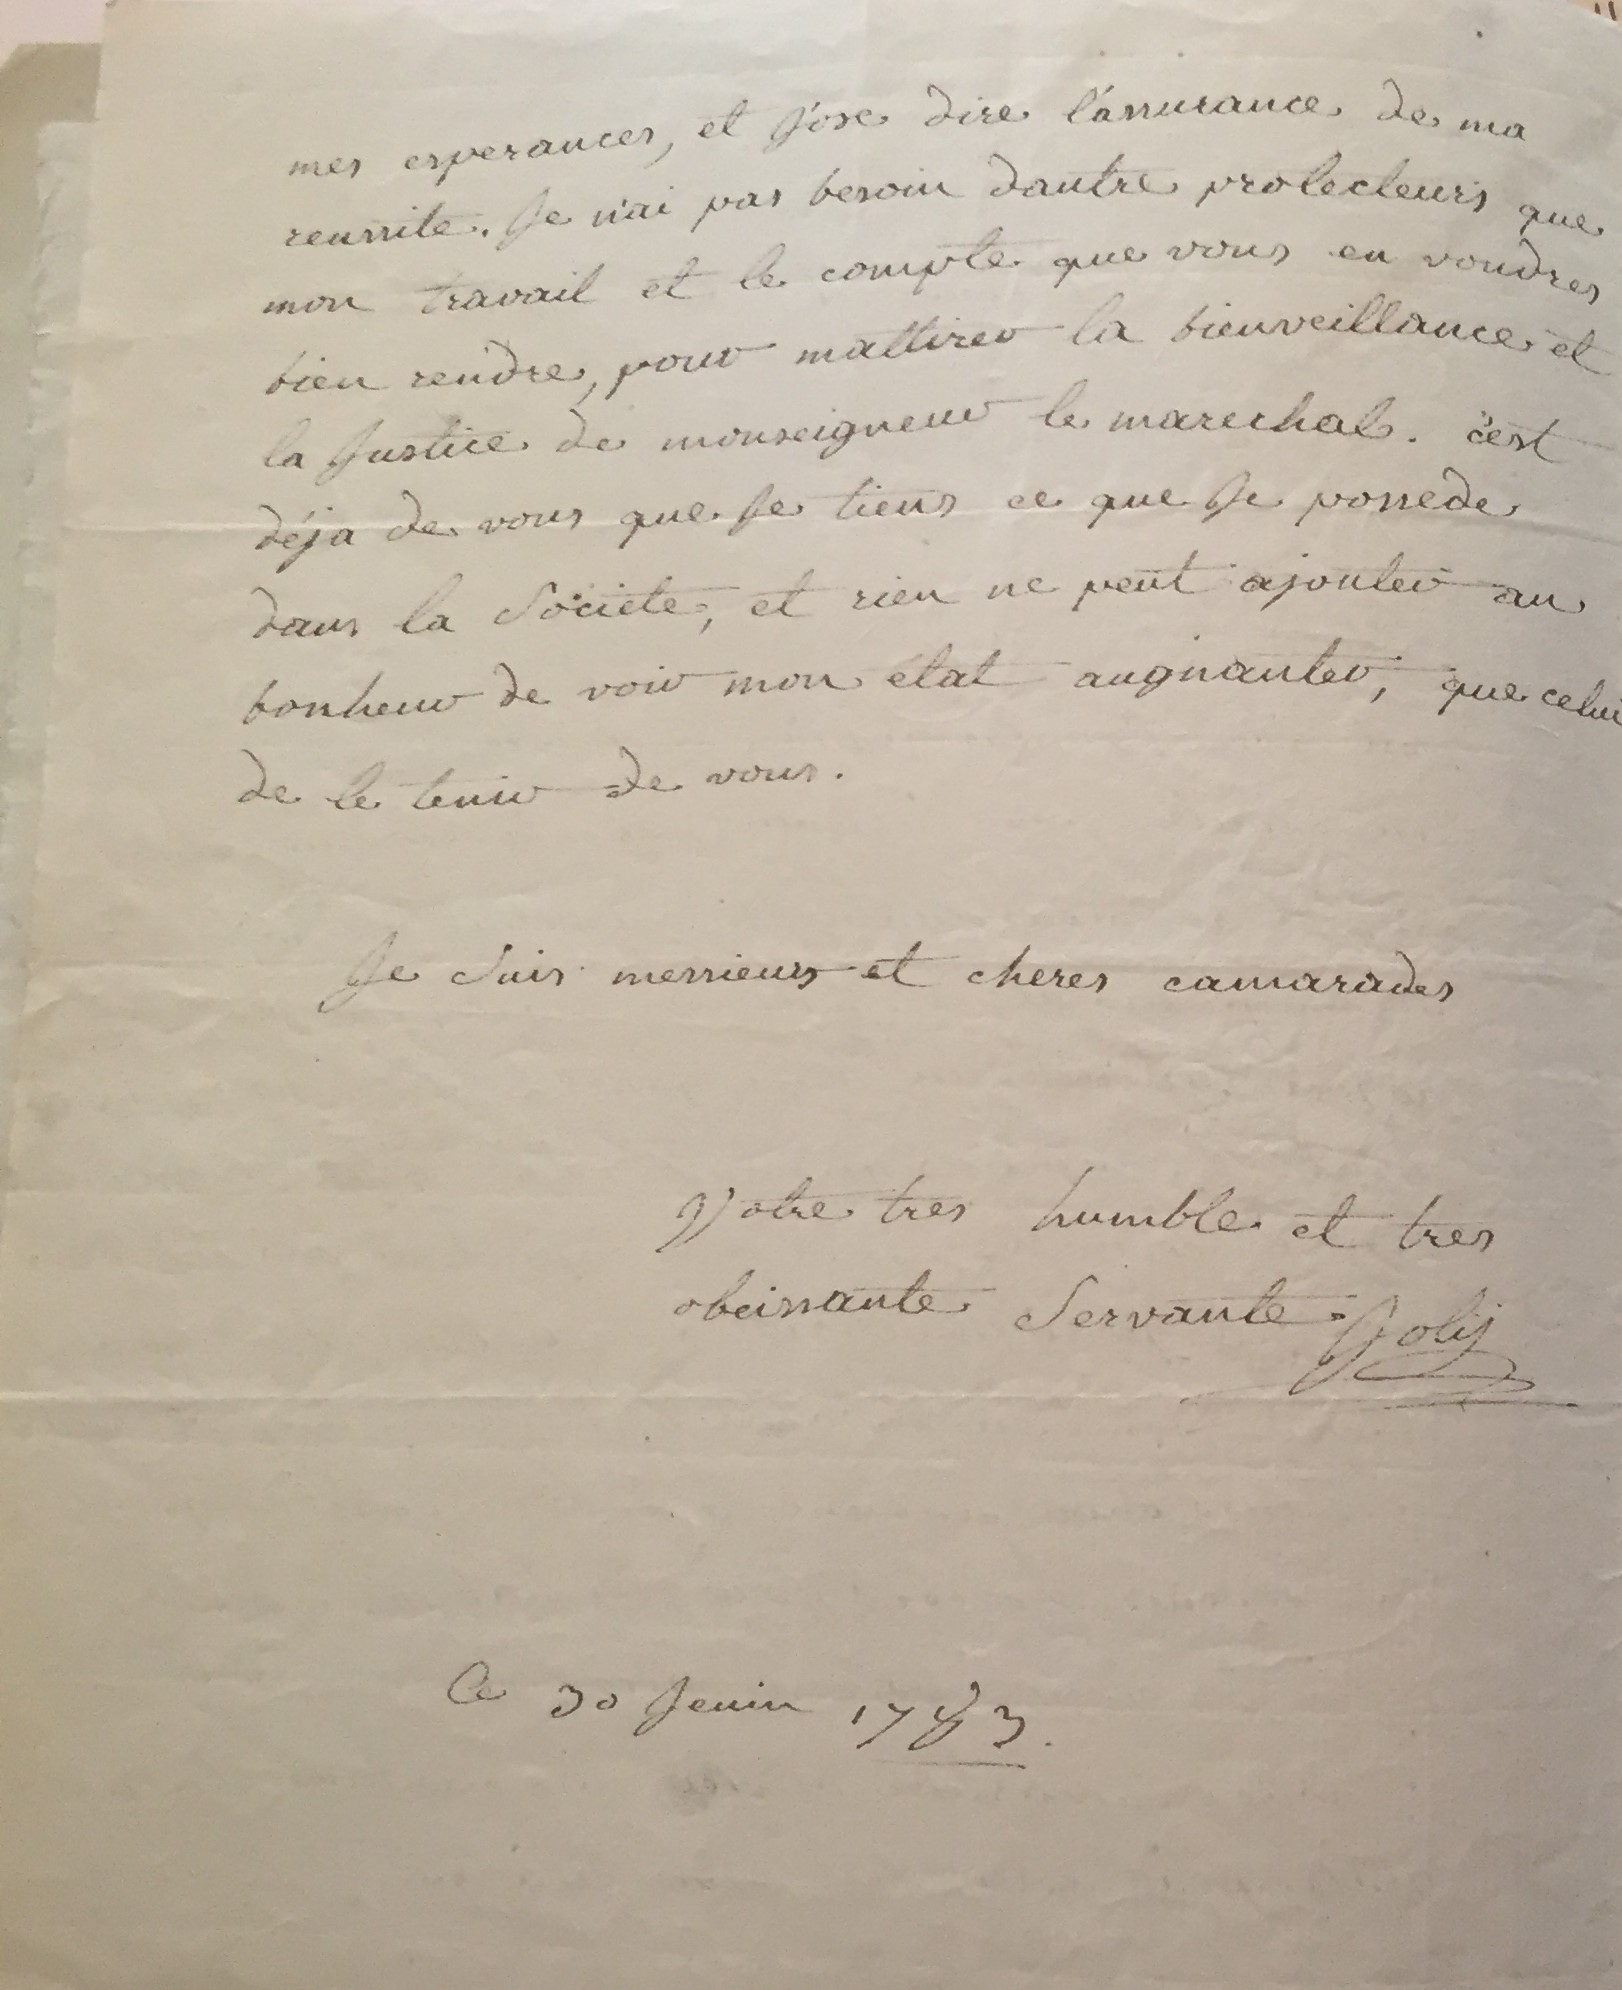 mes esperances, et J'ose dire l'assurance de ma
reussite. Je n'ai pas besoin dautre protecteurs que
mon travail et le compte que vous en voudres
bien rendre, pour mattirer la bienveillance et
la Justice de monseigneur le marechal. c'est
déja de vous que Je tiens ce que Je possede
dans la Societe, et rien ne peut ajouter au
bonheur de voir mon état augmanter, que celui
de le tenir de vous.
Je Suis messieurs et cheres camarades
Votre tres humble et tres
obeissante Servante. Joly
Ce 30 Jeuin 1783.